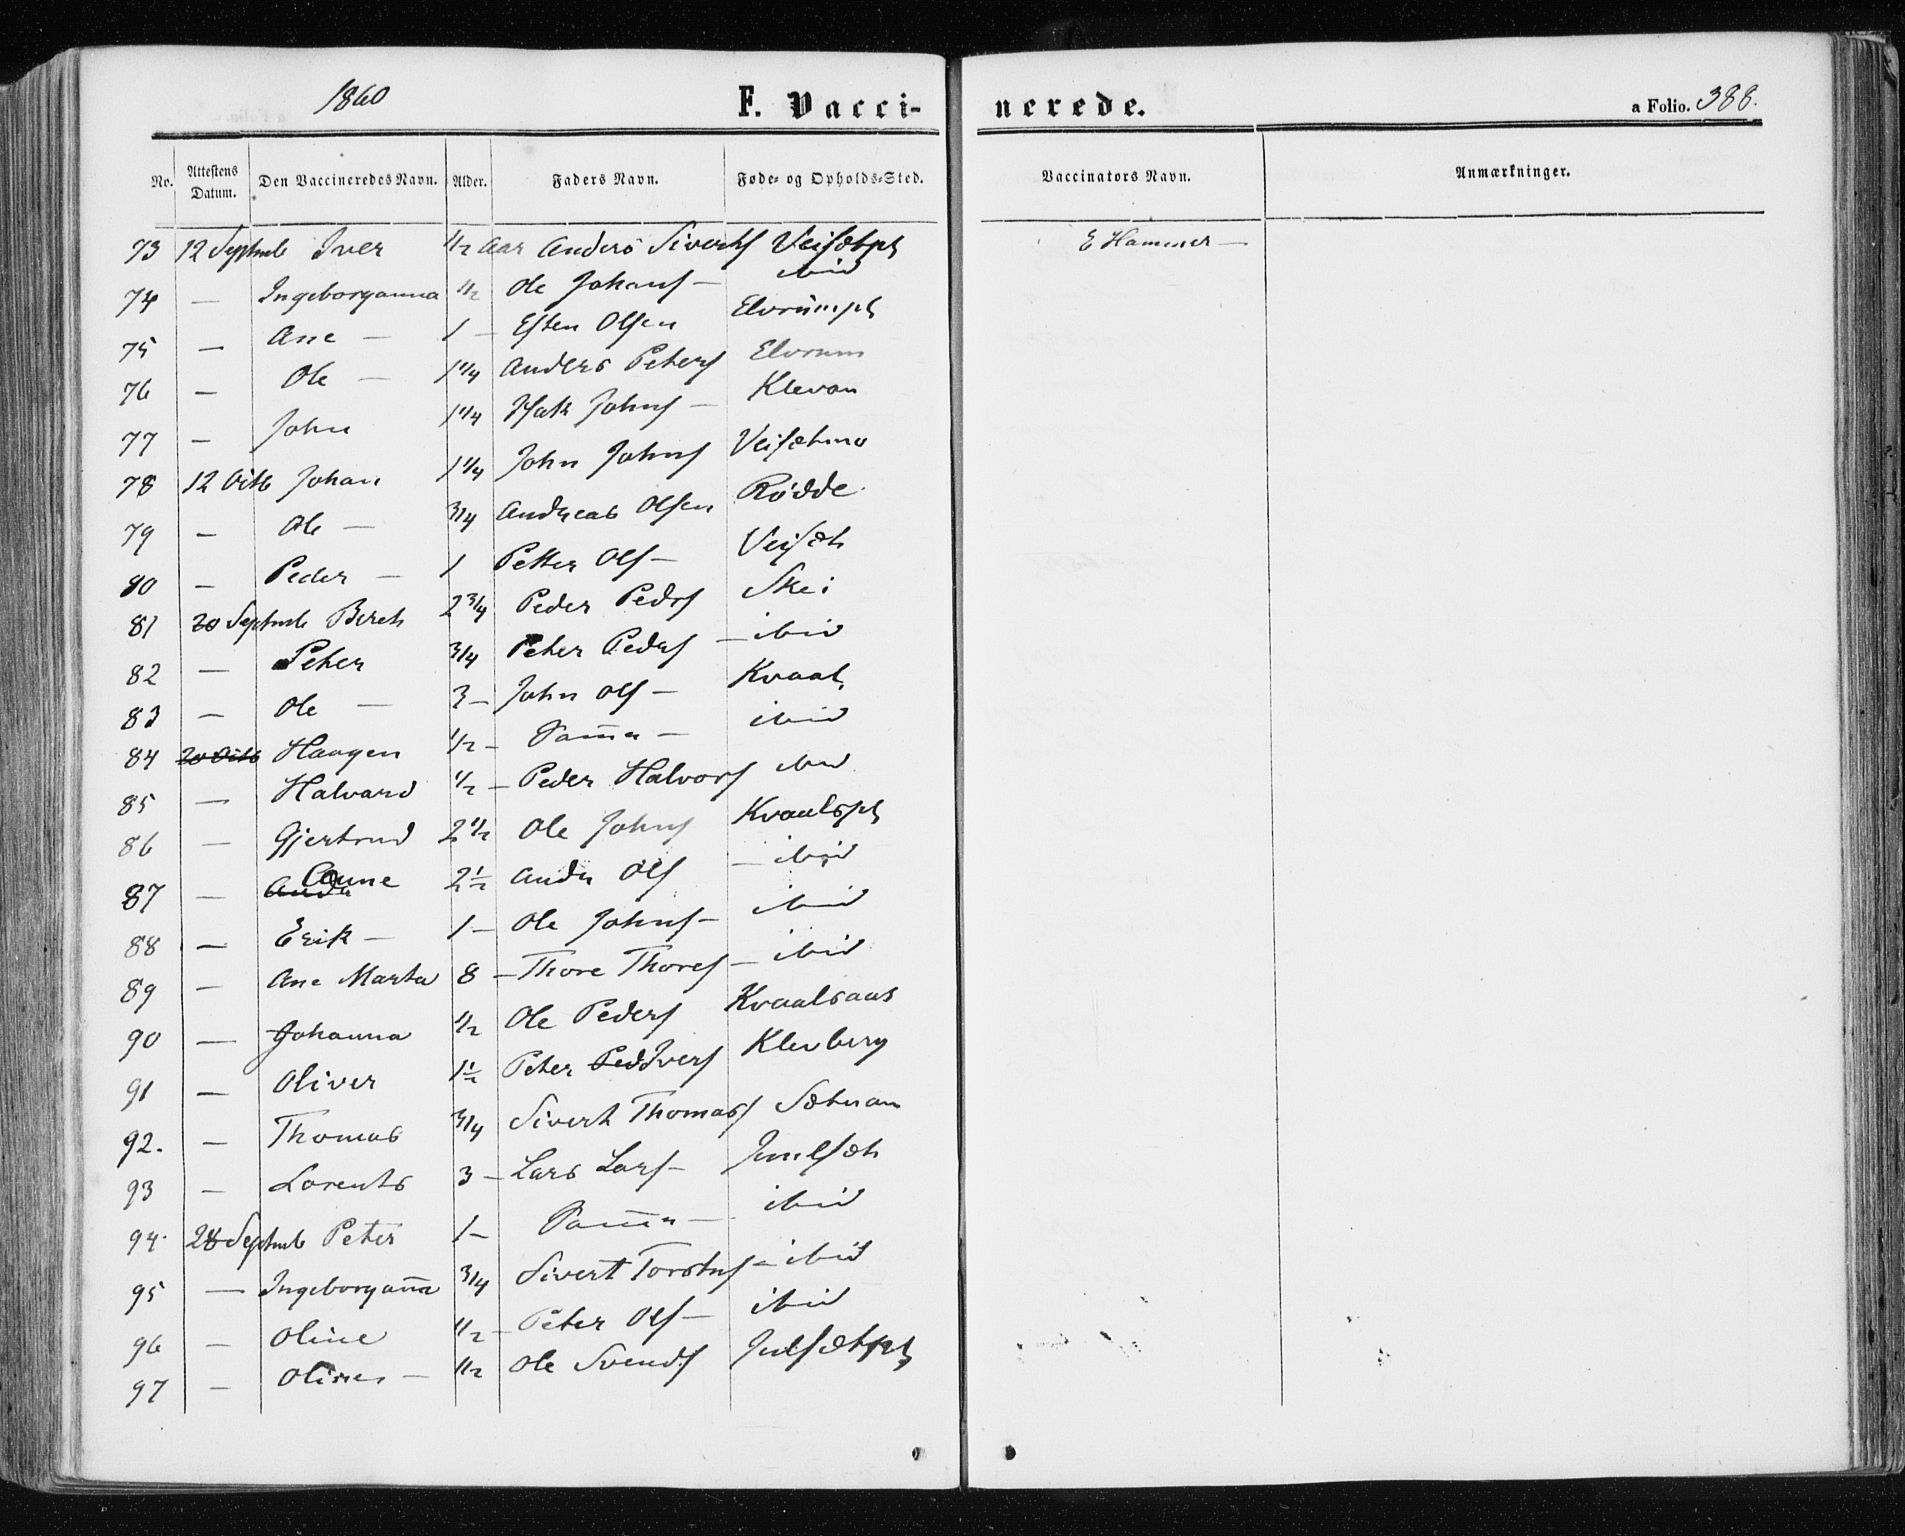 1860 F. Vacci- nerede. a Folio. 388.
No. Attestens Datum. Den Vaccineredes Navn. Alder. Faders Navn. Føde- og Opholds-Sted. Vaccinators Navn. Anmærkninger.
73 12 Septmb Iver 1/2 Aar Anders Siverts Veisetpl E Hammer —
74 — Ingeborganna 1/2 Ole Johans — ibid
75 — Ane — 1 — Esten Olsen Elvrumpl
76 — Ole — 1 1/4 Anders Peters Elvrum
77 — John 1 1/4 Isak Johns — Klevan
78 12 Octb Johan 1 1/4 John Johns Veisetmo
79 — Ole — 3/4 Andreas Olsen Rødde
80 — Peder — 1 Petter Ols — Veiseth
81 20 Septmb Bereth 2 3/4 Peder Peders Skei
82 — Peter 3/4 Peter Peders — ibid
83 — Ole — 3 — John Ols — Kvaal
84 20 Octb Haagen 1/2 — Samme — ibid
85 — Halvard 1/2 — Peder Halvors ibid
86 — Gjertrud 2 1/2 Ole Johns Kvaalspl
87 — Anne 2 1/2 Ander Ols — ibid
88 — Erik — 1 — Ole Johns — ibid
89 — Ane Marta 8 — Thore Thores — ibid
90 — Johanna 1/2 Ole Peders Kvaalsaas
91 — Oliver 1 1/2 Peter Ped Ivers Klevberg
92. — Thomas 3/4 Sivert Thomas Sætnan
93 — Lorents 3 — Lars Lars — Julseth
94. 28 Septmb Peter 1 — Samme — ibid
95 — Ingeborganna 3/4 Sivert Torstens — ibid
96 — Oline 1/2 — Peter Ols — ibid
97 — Oline — 1/2 Ole Svends Julsetpl